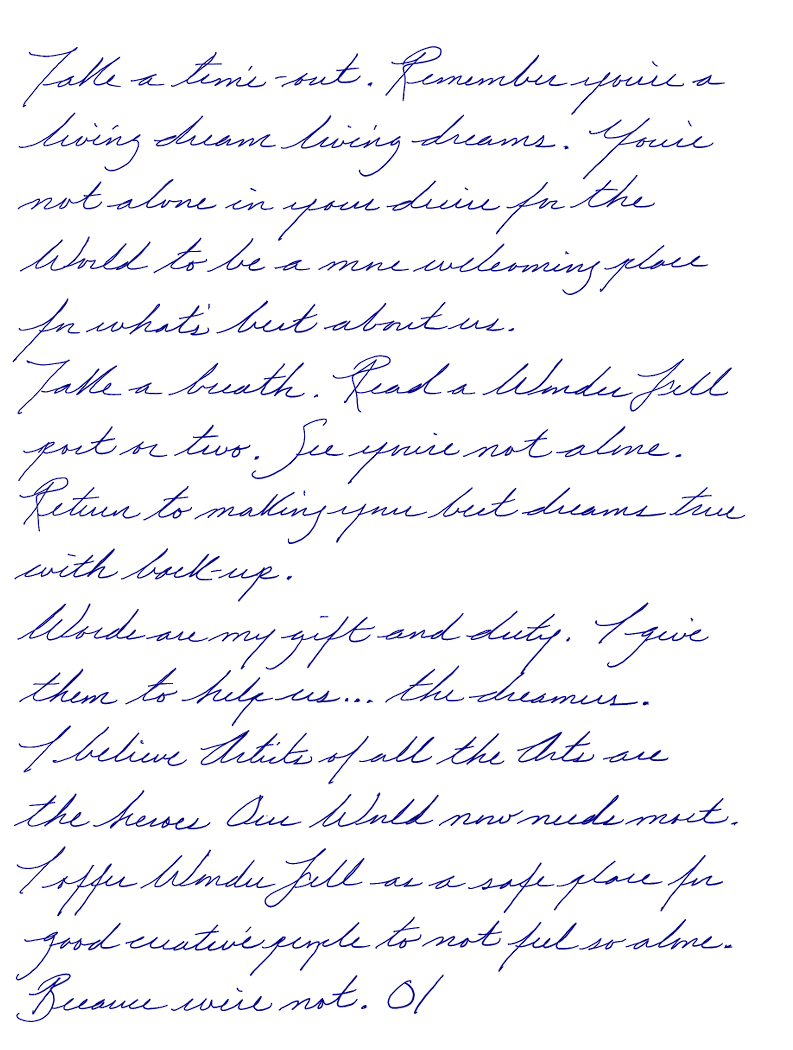 Take a time-out. Remember you're a
living dream living dreams. You're
not alone in your desire for the
World to be a more welcoming place
for what's best about us.
Take a breath. Read a Wonder Fell
post or two. See you're not alone.
Return to making your best dreams true
with back-up.
Words are my gift and duty. I give
them to help us... the dreamers.
I believe Artists of all the Arts are
the heroes Our World now needs most.
I offer Wonder Fell as a safe place for
good creative people to not feel so alone.
Because we're not.